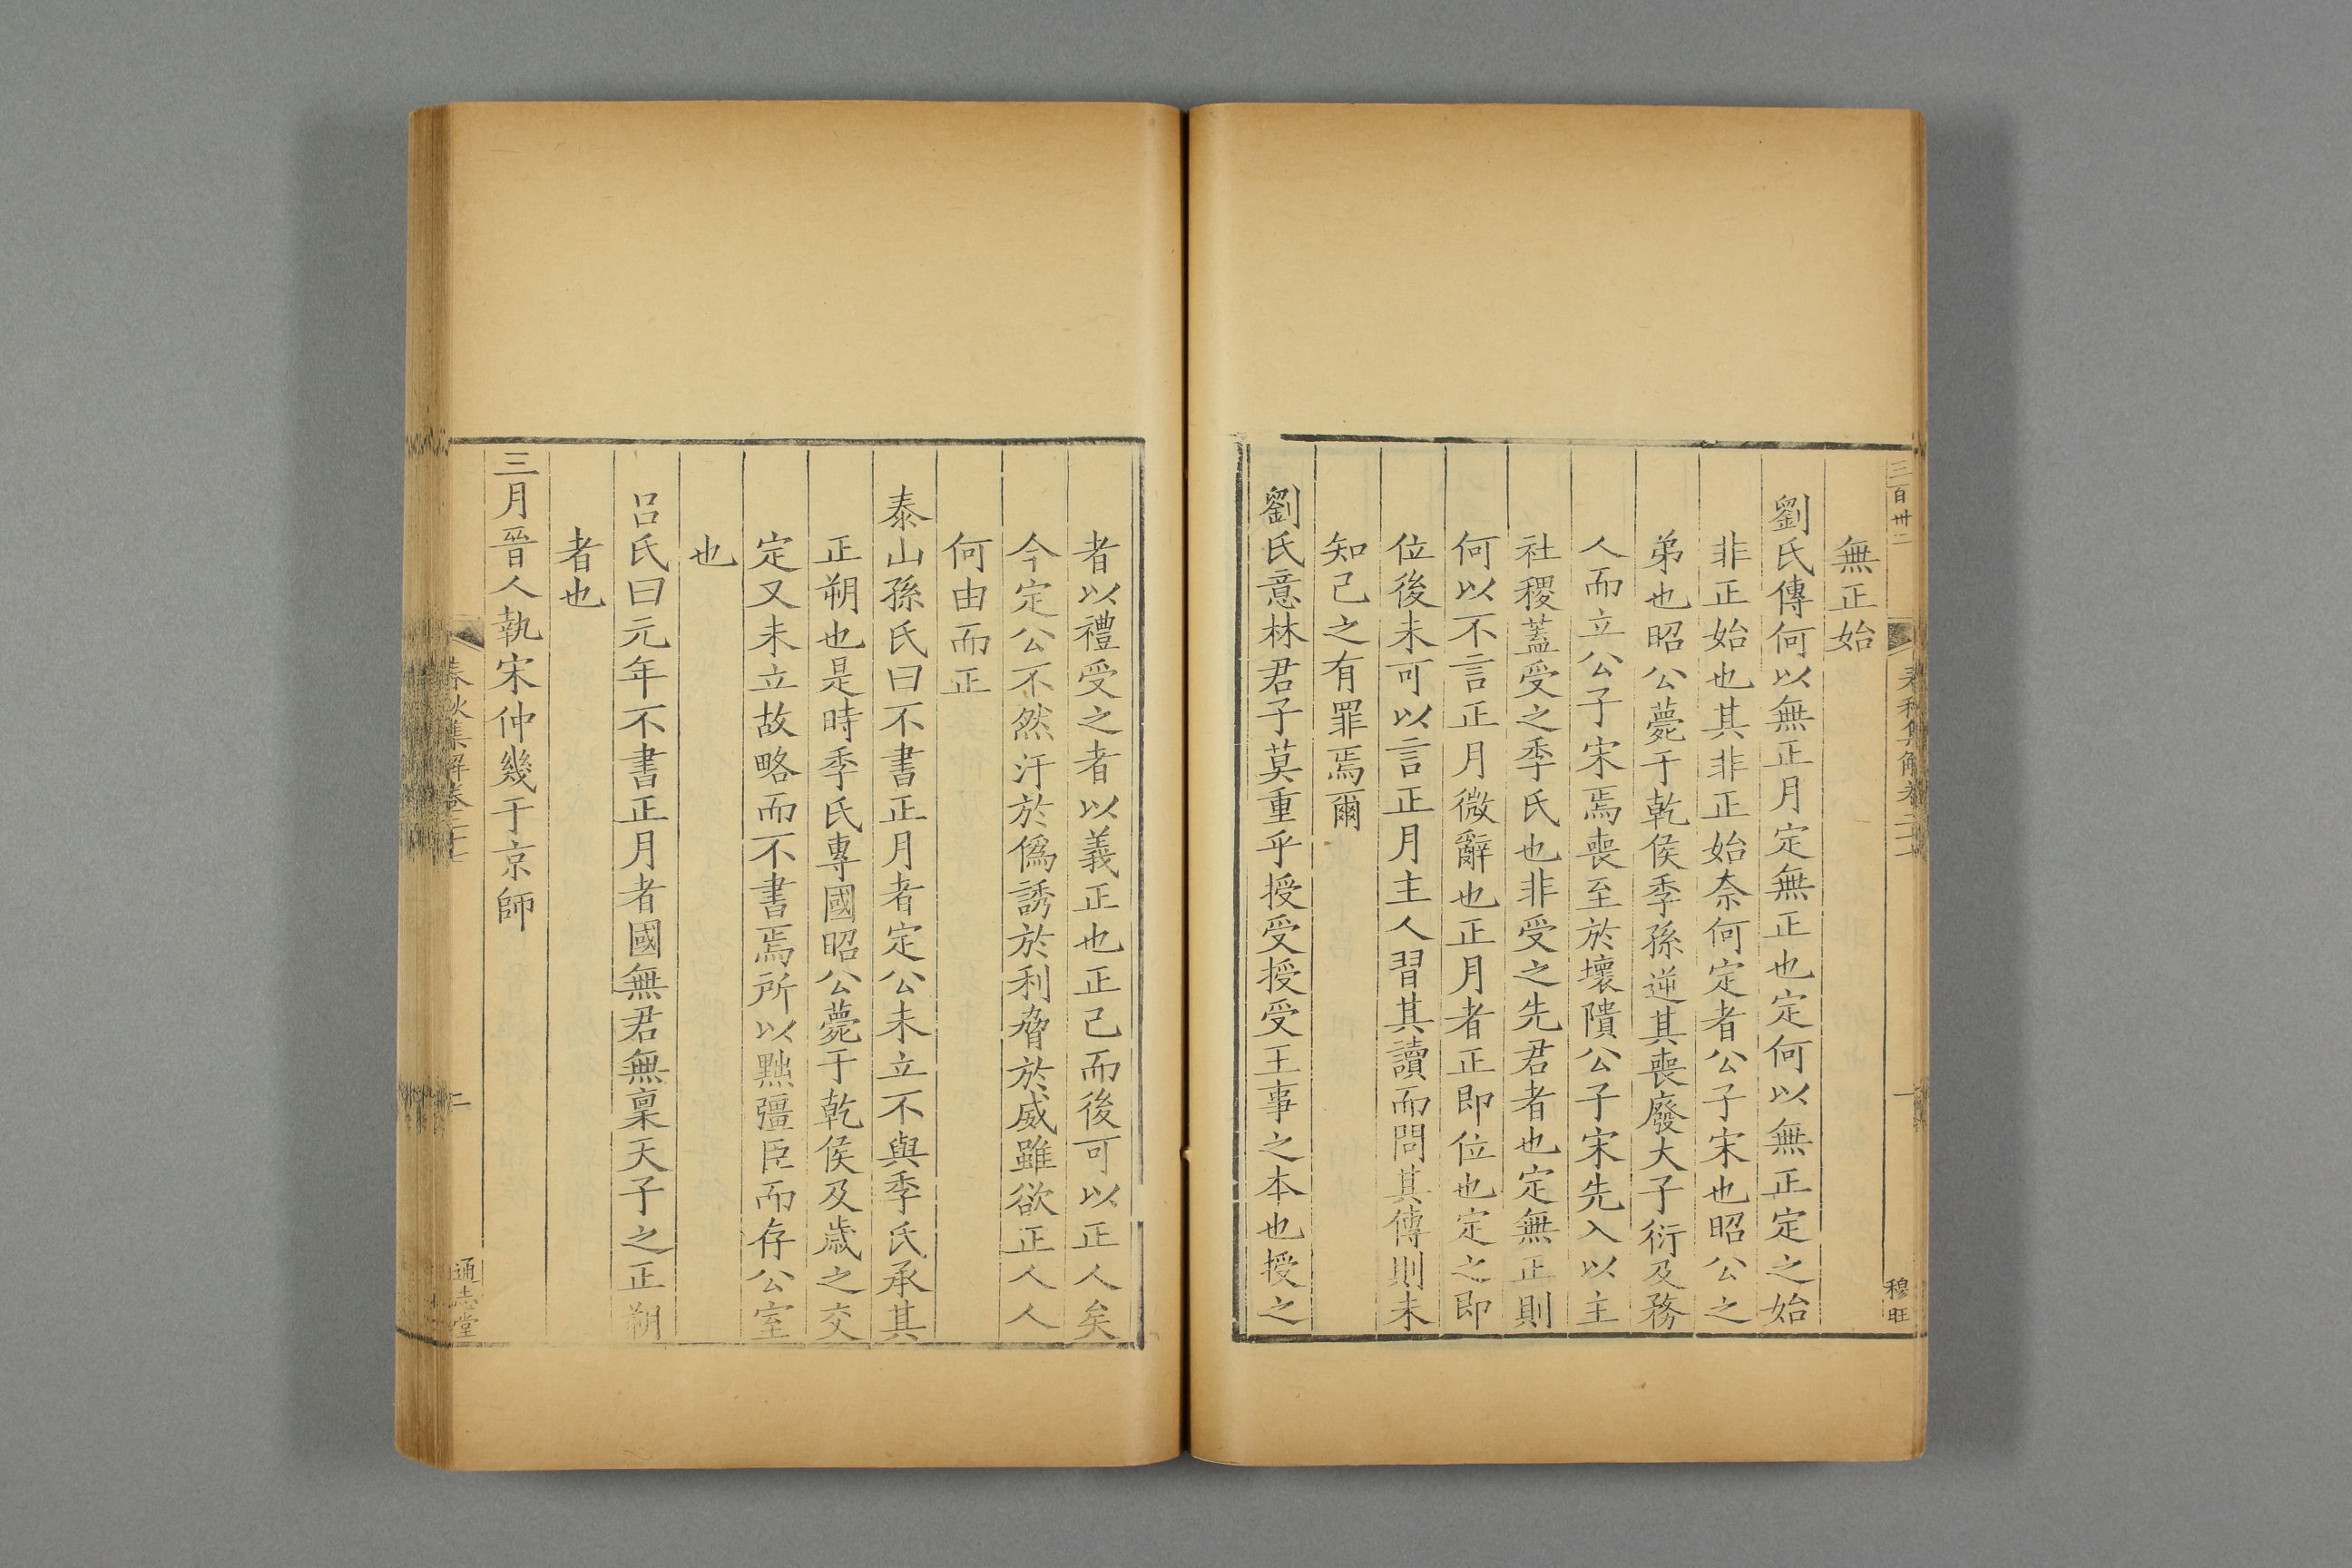 三百卅二
一
穆旺
無正始
劉氏傳何以無正月定無正也定何以無正定之始
非正始也其非正始奈何定者公子宋也昭公之
弟也昭公薨于乾侯季孫逆其喪廢大子衍及務
人而立公子宋焉喪至於壞隤公子宋先入以主
社稷蓋受之季氏也非受之先君者也定無正則
何以不言正月微辭也正月者正即位也定之即
位後未可以言正月主人習其讀而問其傳則未
知己之有罪焉爾
劉氏意林君子莫重乎授受授受王事之本也授之
者以禮受之者以義正也正己而後可以正人矣
今定公不然汙於僞誘於利脅於威雖欲正人人
何由而正
泰山孫氏曰不書正月者定公未立不與季氏承其
正朔也是時季氏專國昭公薨于乾侯及歲之交
定又未立故略而不書焉所以黜彊臣而存公室
也
呂氏曰元年不書正月者國無君無稟天子之正朔
者也
三月晉人執宋仲幾于京師
春秋集解卷二十七
二
通志堂